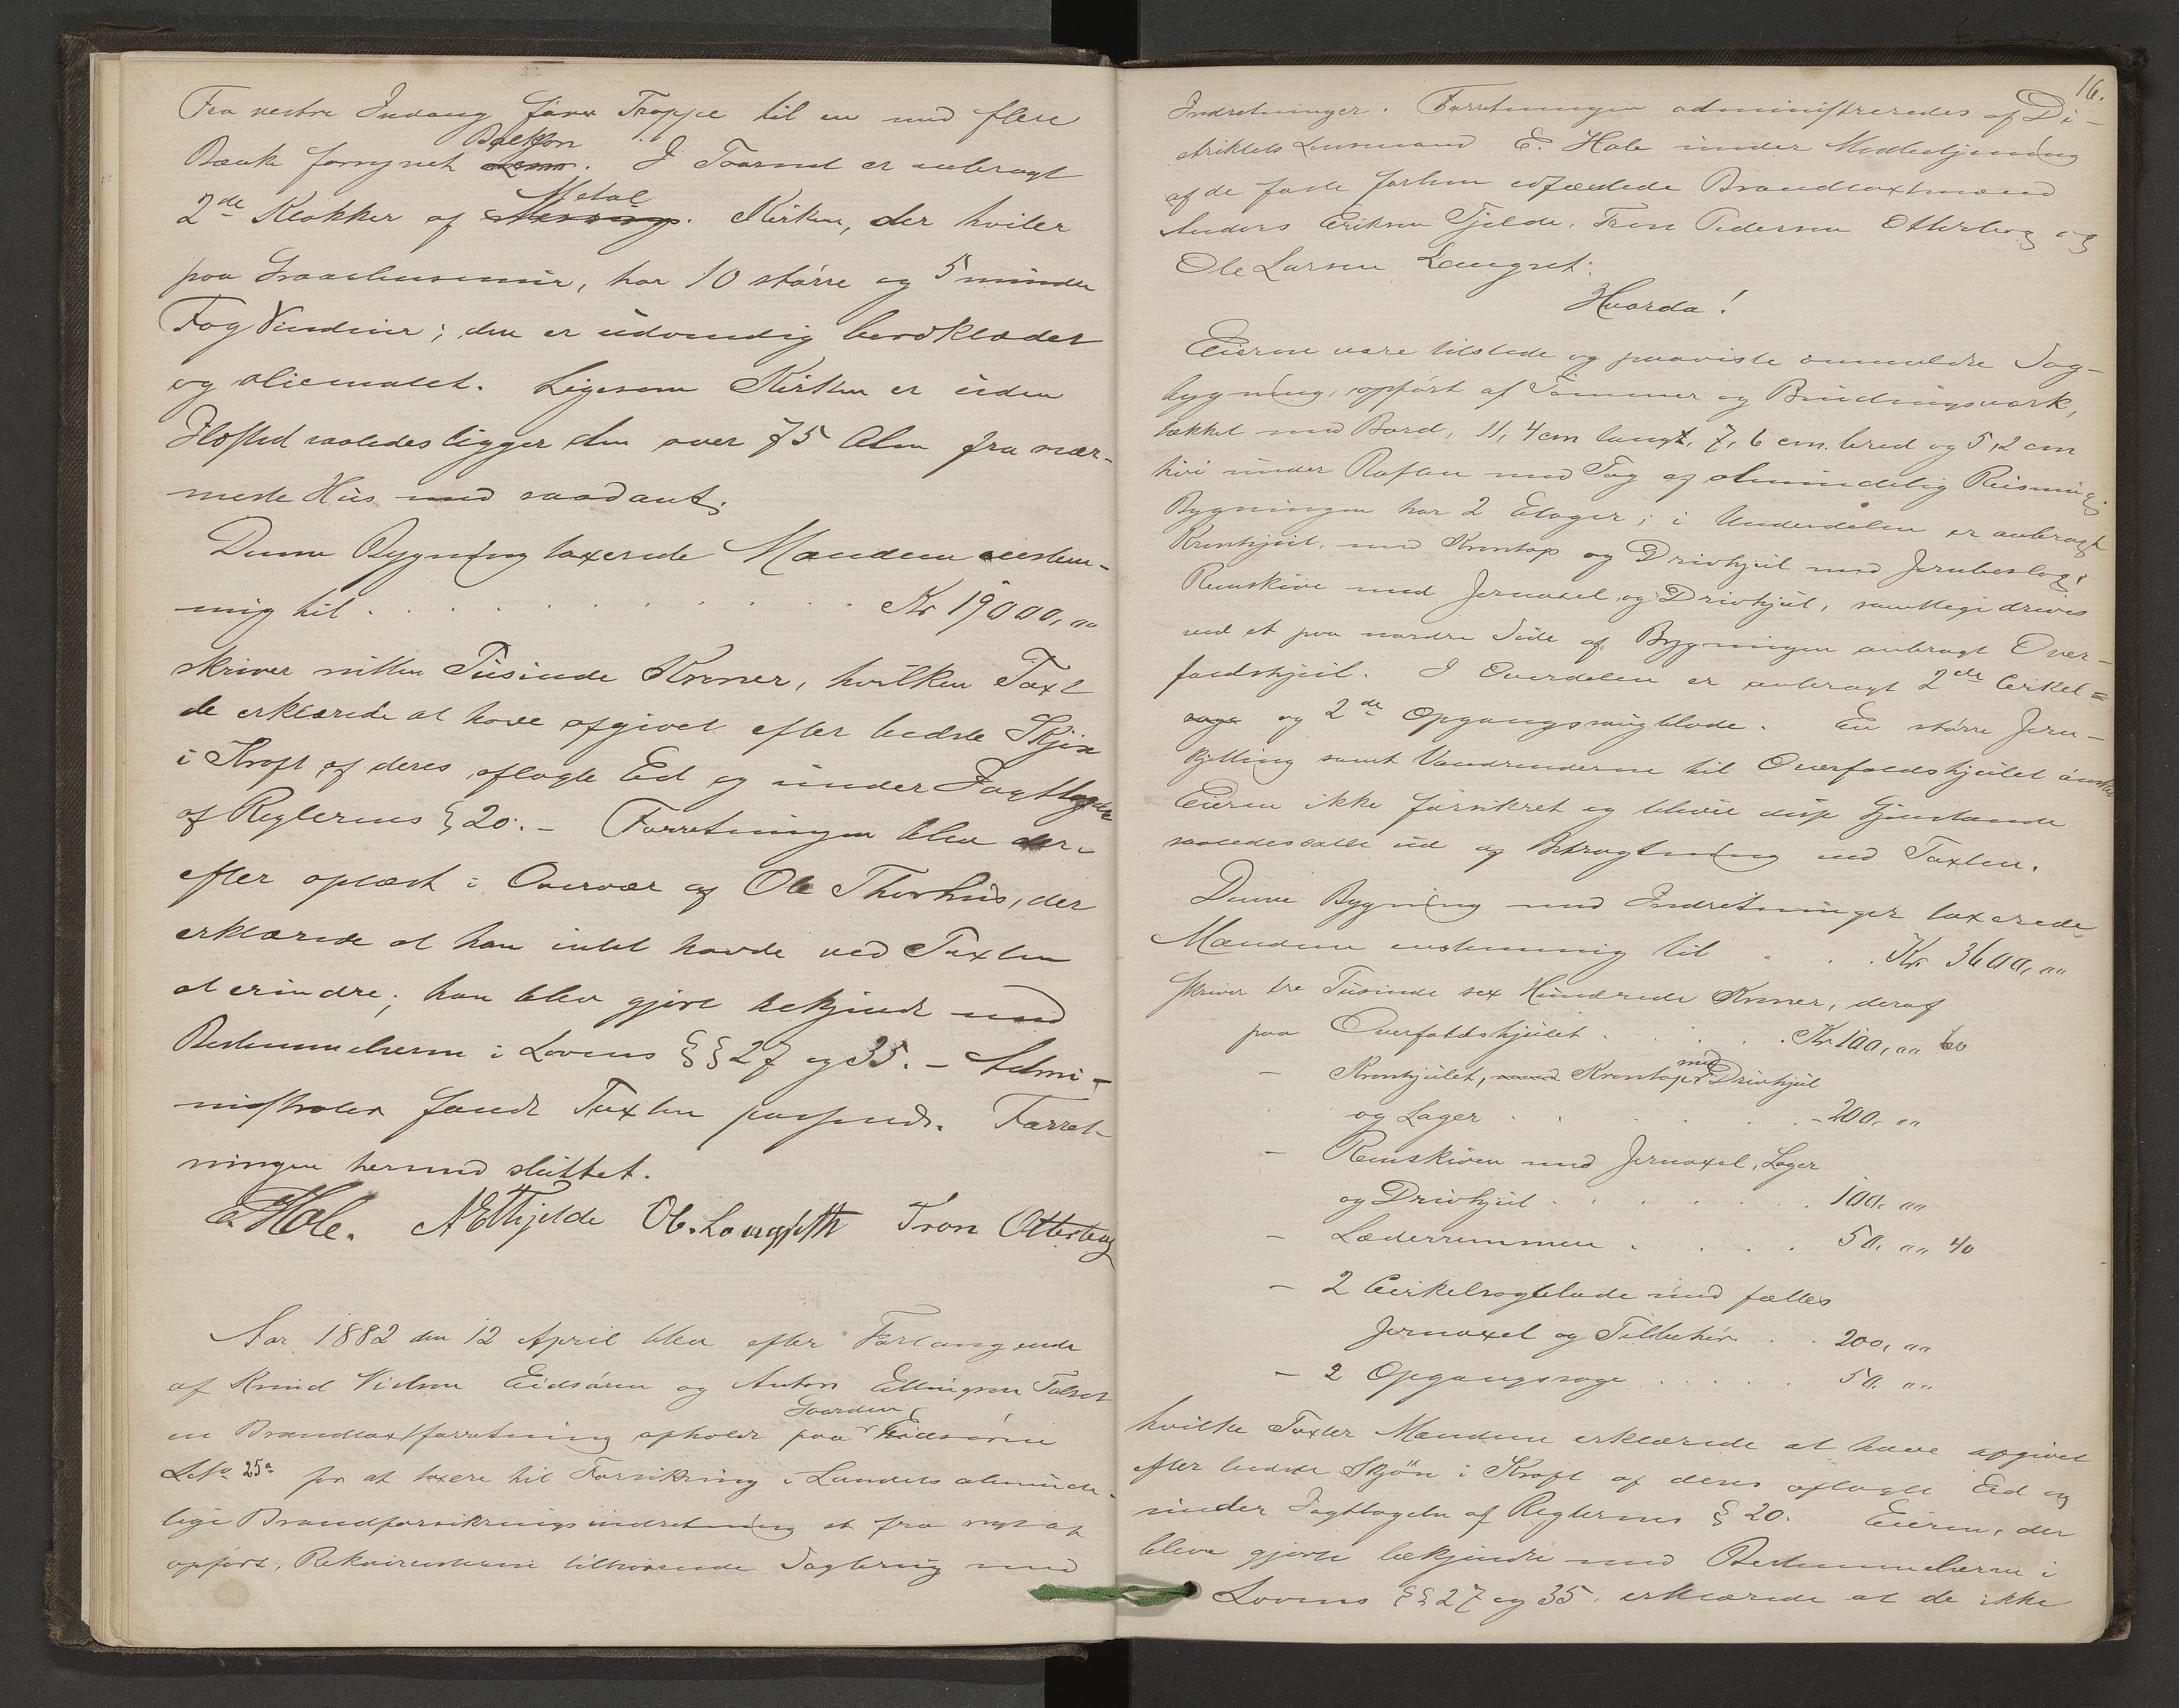 Fra vestre Indgang fører Trappe til en med flere
Bænke forsynet Balkon. I Taarnet er anbragt
2de Klokker af Metal. Kirken, der hviler
paa Graastensmur, har 10 større og 5 mindre
Fag Vinduer; den er udvendig bordklædet
og oliemalet. Ligesom Kirken er uden
Ildsted saaledes ligger den over 75 Alen fra nær-
meste Hus med saadant.
Denne Bygning taxerede Mændene eenstem-
mig til . . . . . . . . . . Kr 19000,""
skriver nitten Tusinde Kroner, hvilken Taxt
de erklærede at have afgivet efter bedste Skjøn
i Kraft af deres aflagte Ed og under Iagttagelse
af Reglernes § 20. – Forretningen blev der-
efter oplæst i Overvær af Ole Thorhus, der
erklærede at han intet havde ved Taxten
at erindre; han blev gjort bekjendt med
Bestemmelserne i Lovens §§ 27 og 35. – Admi-
nistrator fandt Taxten passende. Forret-
ningen hermed sluttet.
E. Hole. A E Tjelde Ol. Langseth Tron Otterbeg
Aar 1882 den 12 April blev efter Forlangende
af Knud Nielsen Eidsøren og Anton Ellingsen Talset
en Brandtaxtforretning afholdt paa Gaarden Eidsøren
LNo 25a for at taxere til Forsikring i Landets alminde-
lige Brandforsikringsindretning et fra nyt af
opført, Rekvirenterne tilhørende Sagbrug med
16.
Indretninger. Forretningen administreredes af Di-
striktets Lensmand E. Hole under Medbetjening
af de faste forhen edfæstede Brandtaxtmænd
Anders Eriksen Tjelde, Tron Pedersen Otterbeg og
Ole Larsen Langset.
Hvorda!
Eierne vare tilstede og paaviste anmeldte Sag-
bygning, opført af Tømmer og Bindingsværk,
tækket med Bord, 11,4 cm langt, 7,6 cm. bred og 5,2 cm
høi under Raften med Tag af almindelig Reisning.
Bygningen har 2 Etager; i Underdelen er anbragt
Kronhjul, med Krontap og Drivhjul med Jernbeslag;
Remskive med Jernaxel og Drivhjul, samtlige drives
ved et paa nordre Side af Bygningen anbragt Over-
faldshjul. I Overdelen er anbragt 2de Cirkel=
sage og 2de Opgangssagblade. En større Jern-
kjetting samt Vandrenderne til Overfaldshjulet ønsker
Eierne ikke forsikret og bleve disse Gjenstande
saaledes satte ud af Betragtning ved Taxten.
Denne Bygning med Indretninger taxerede
Mændene enstemmig til . . . Kr 3600,""
skriver tre Tusinde sex Hundrede Kroner, deraf
paa Overfaldshjulet . . . . . Kr 100,"" 60
– Kronhjulet, Krontap med Drivhjul
og Lager . . . . . . – 200,""
– Remskiven med Jernaxel, Lager
og Drivhjul . . . . . . 100,""
– Læderremmen . . . . . 50,"" 40
– 2 Cirkelsagblade med fælles
Jernaxel og Tilbehør . . 200,""
– 2 Opgangssage . . . . . 50,""
hvilke Taxter Mændene erklærede at have afgivet
efter bedste Skjøn i Kraft af deres aflagte Ed og
under Iagttagelse af Reglernes § 20. Eierne, der
bleve gjorte bekjendte med Bestemmelserne i
Lovens §§ 27 og 35, erklærede at de ikke